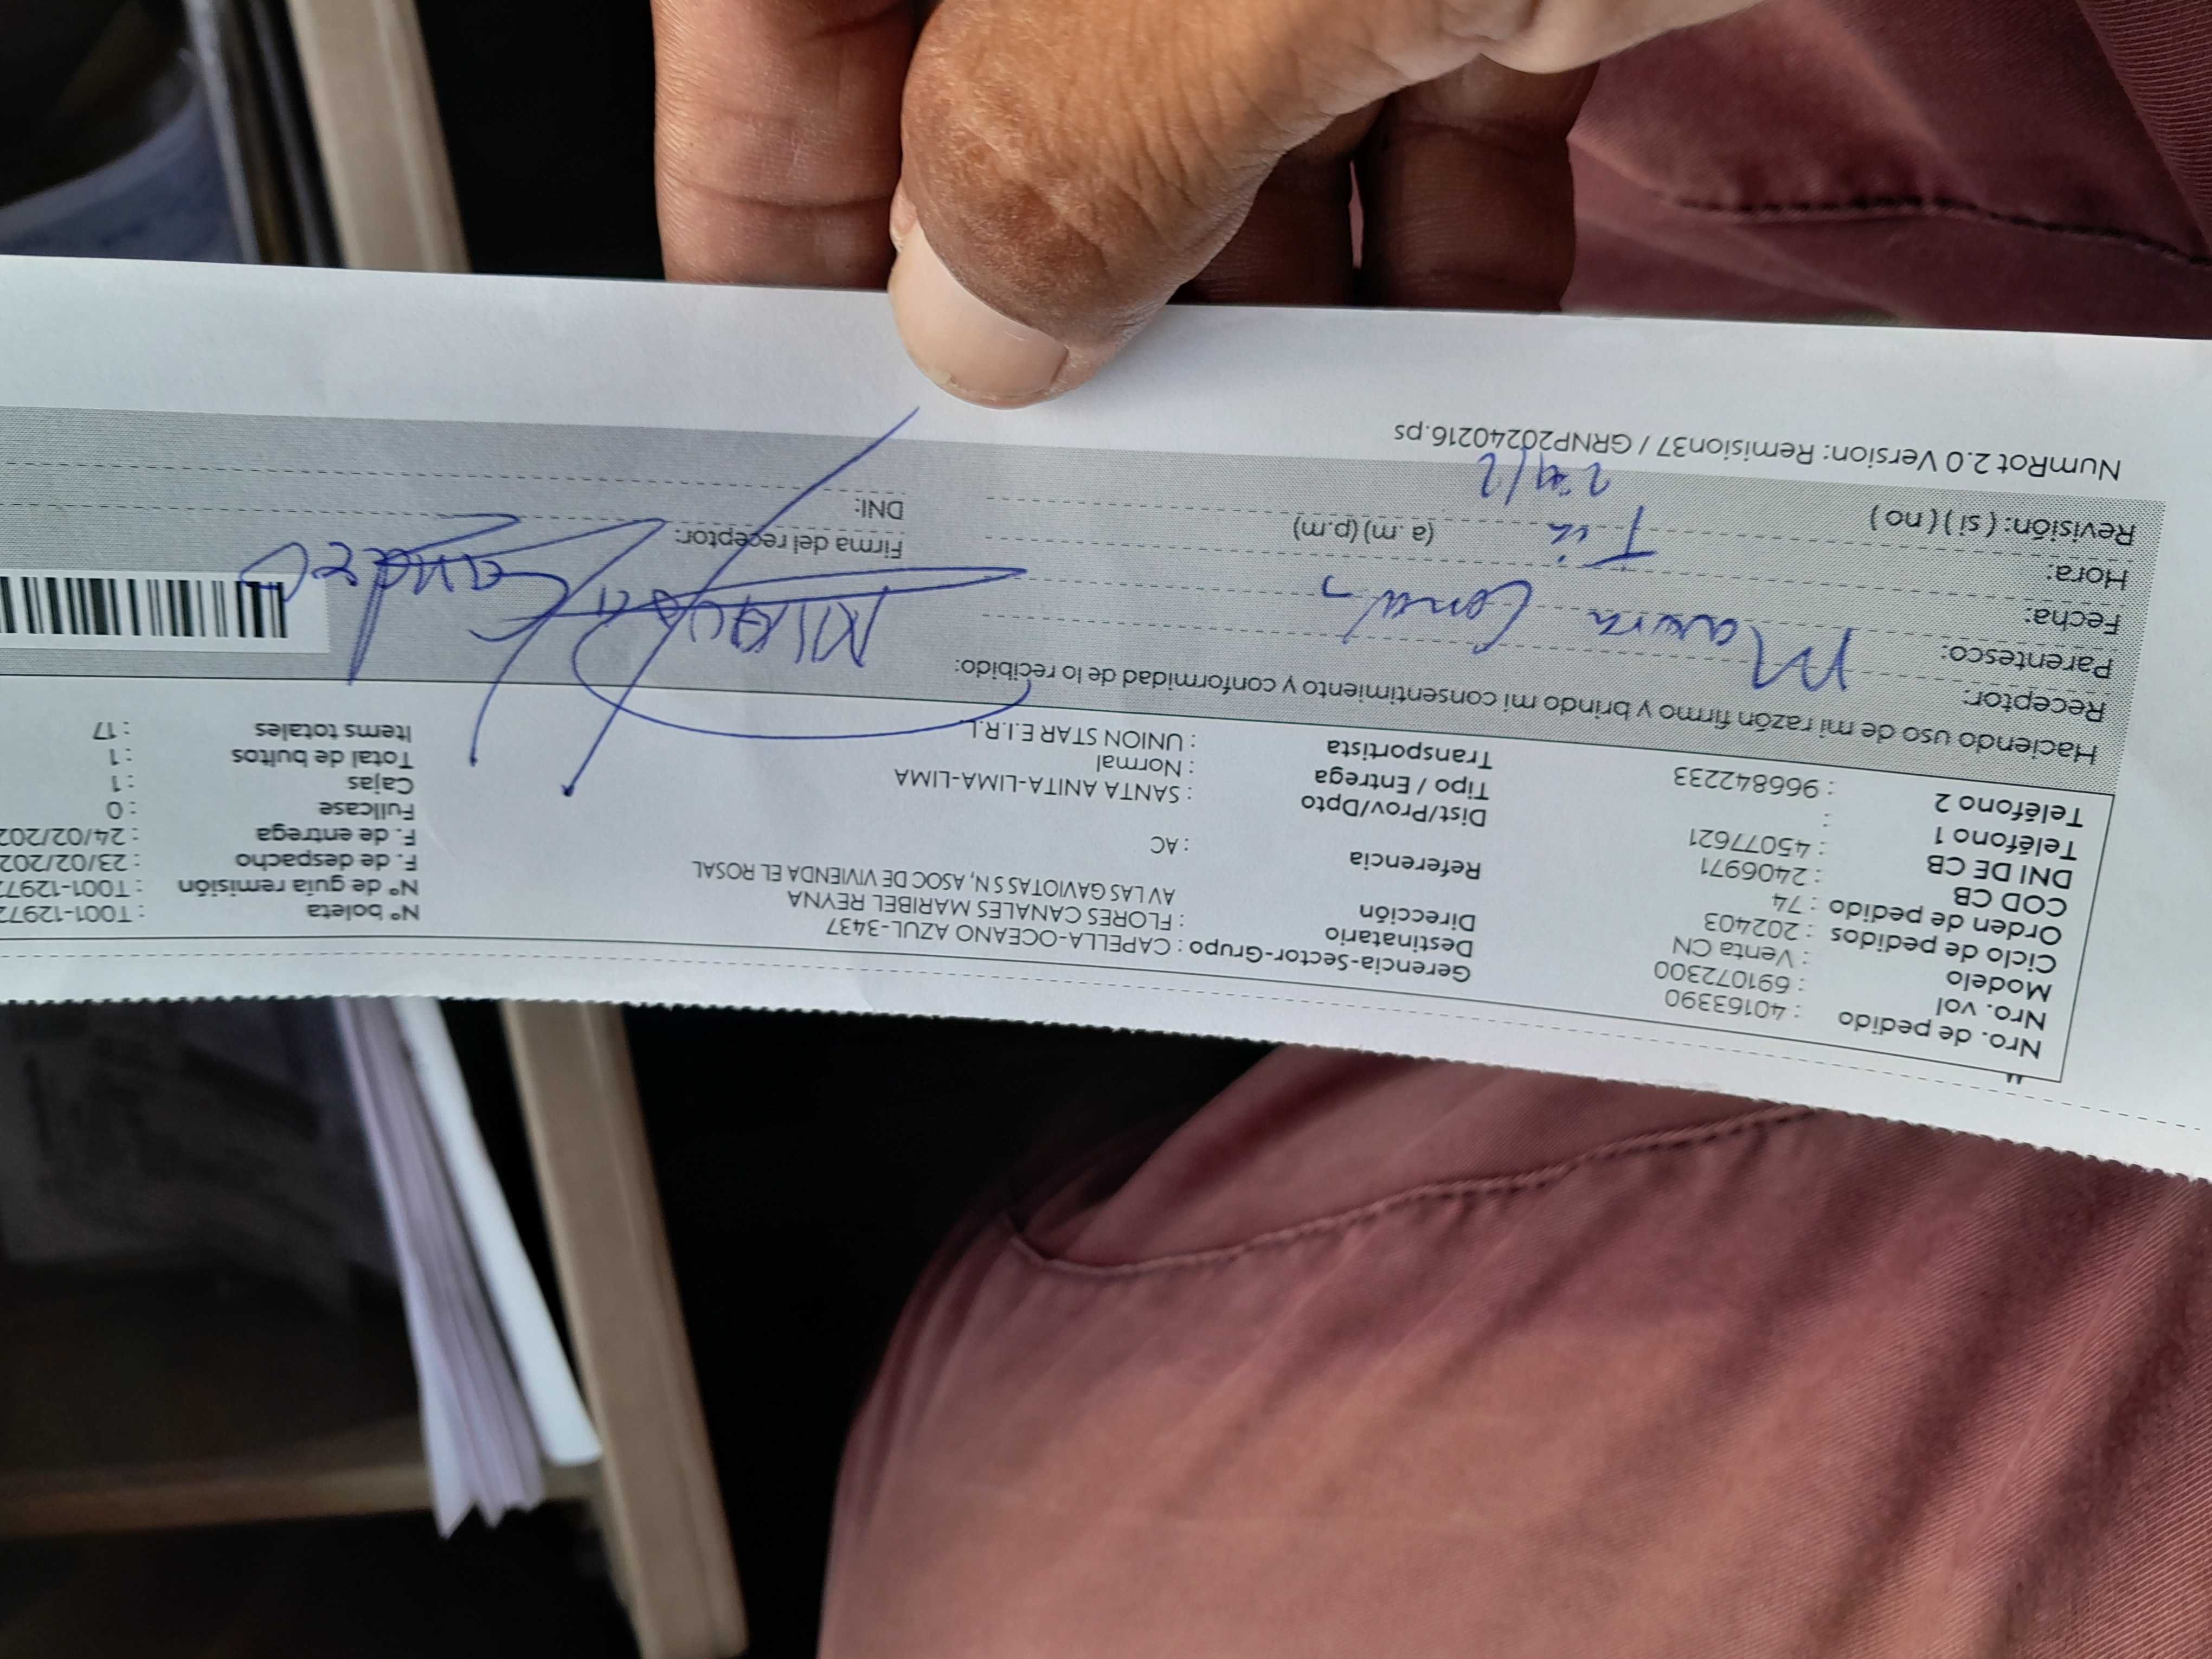 Nro. de pedido : 40163390
Nro. vol : 691072300
Modelo : Venta CN
Ciclo de pedidos : 202403
Orden de pedido : 74
COD CB : 2406971
DNI DE CB : 45077621
Teléfono 1 :
Teléfono 2 : 966842233
Gerencia-Sector-Grupo : CAPELLA-OCEANO AZUL-3437
Destinatario : FLORES CANALES MARIBEL REYNA
Dirección AV LAS GAVIOTAS S N, ASOC DE VIVIENDA EL ROSAL
Referencia : AC
Dist/Prov/Dpto : SANTA ANITA-LIMA-LIMA
Tipo / Entrega : Normal
Transportista : UNION STAR E.I.R.L.
Nº boleta : T001-1297
Nº guía remisión : T001-1297
F. de despacho : 23/02/202
F. de entrega : 24/02/202
Fullcase : 0
Cajas : 1
Total de bultos : 1
Items totales : 17
Haciendo uso de mi razón firmo y brindo mi consentimiento y conformidad de lo recibido:
Receptor:
Parentesco:
Fecha:
Hora: (a. m) (p.m)
Revisión: ( si ) ( no )
Firma del receptor:
DNI:
NumRot 2.0 Version: Remision37 / GRNP20240216.ps